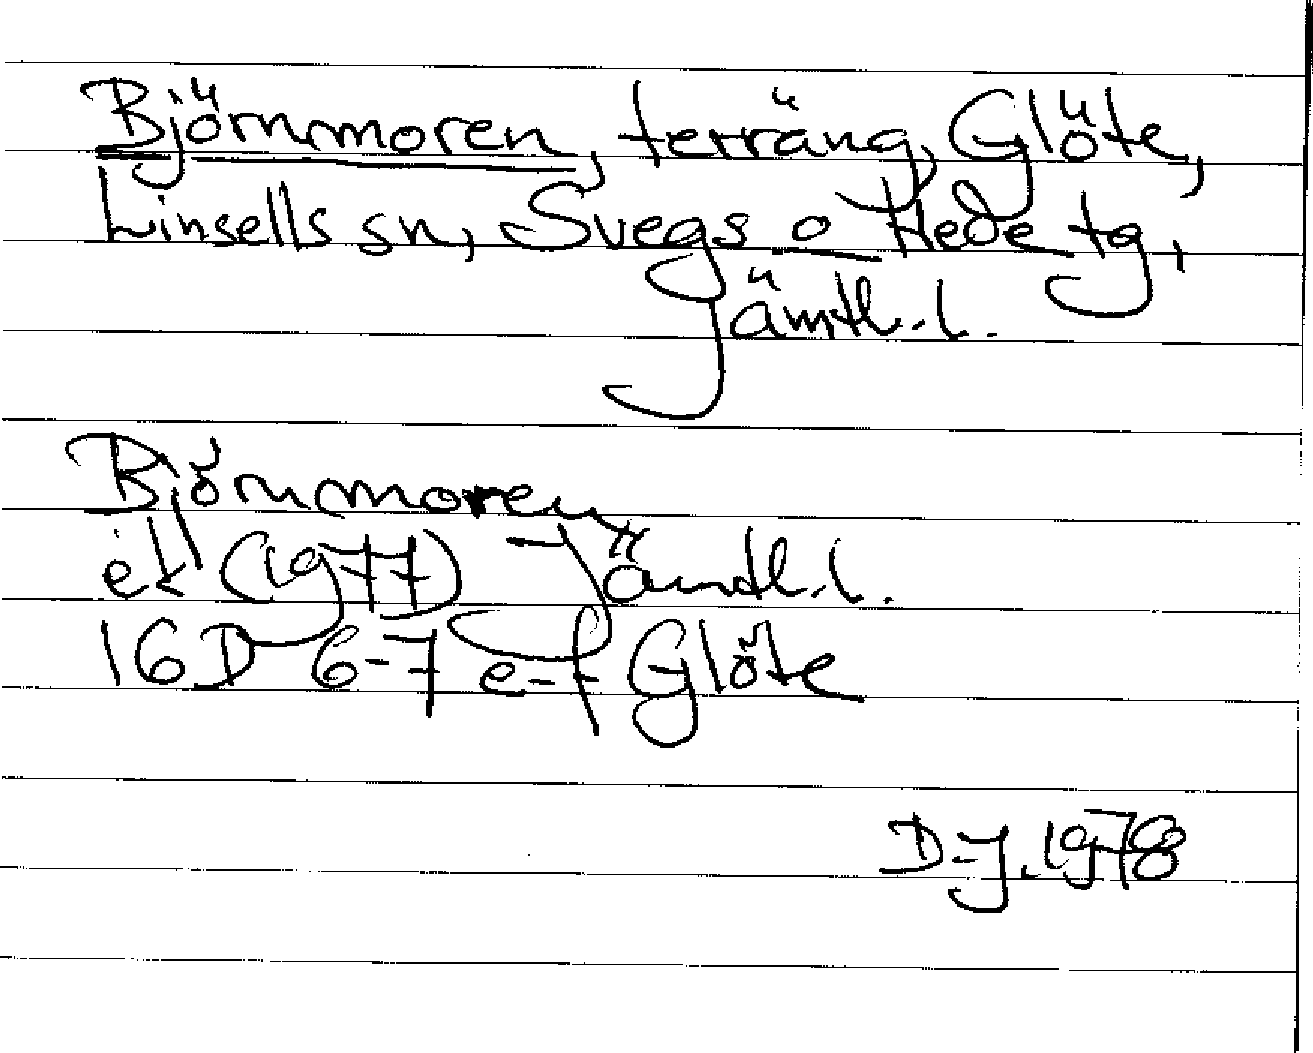 Björnmoren, terräng, Glöte,
Linsells sn, Svegs o Hede tg,
Jämtl. l.
Björnmoren
ek (1977) Jämtl. l.
16D 6-7 e-f Glöte
D-J. 1978